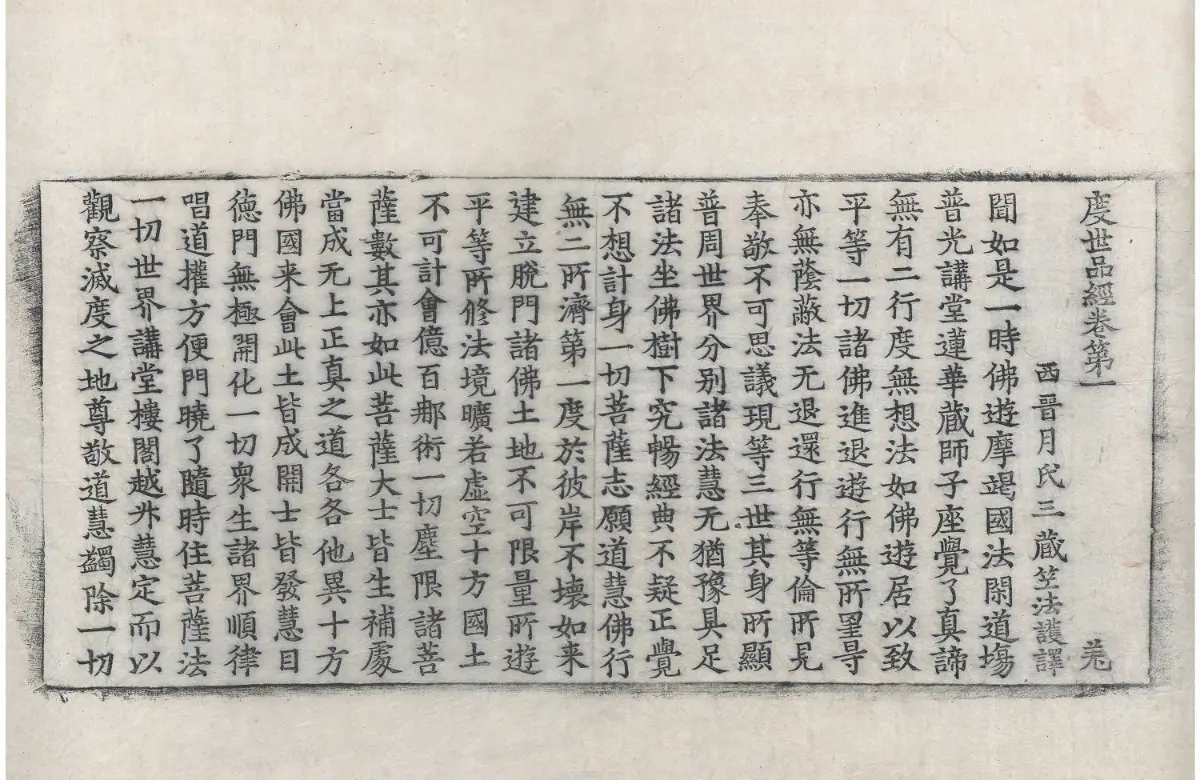 度世品經卷第一
西晉月氏三藏竺法護譯 羌
聞如是一時佛遊摩竭國法閑道場
普光講堂蓮華藏師子座覺了真諦
無有二行度無想法如佛遊居以致
平等一切諸佛進退遊行無所罣㝵
亦無蔭蔽法无退還行無等倫所見
奉敬不可思議現等三世其身所顯
普周世界分别諸法慧无猶豫具足
諸法坐佛樹下究暢經典不疑正覺
不想計身一切菩薩志願道慧佛行
無二所濟第一度於彼岸不壞如来
建立脫門諸佛土地不可限量所遊
平等所修法境曠若虛空十方國土
不可計會億百那術一切塵限諸菩
薩數其亦如此菩薩大士皆生補處
當成无上正真之道各各他異十方
佛國来會此土皆成開士皆發慧目
德門無極開化一切衆生諸界順律
唱道權方便門曉了隨時住菩薩法
一切世界講堂樓閣越升慧定而以
觀察滅度之地尊敬道慧蠲除一切